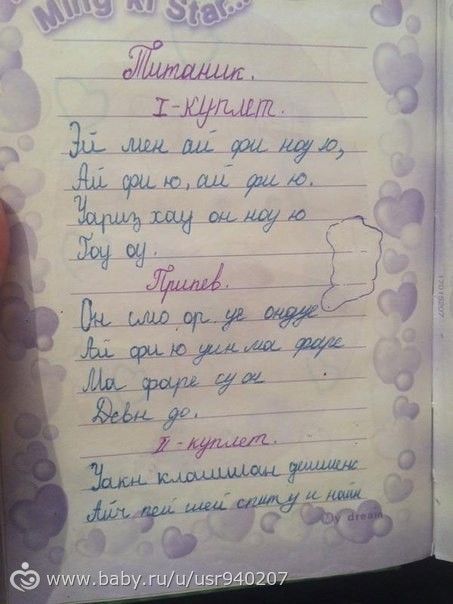 Ming ki Star...
Титаник.
I-куплет.
Эй мен ай фи ноу ю,
Ай фи ю, ай фи ю.
Уариз хау он ноу ю
Гоу оу.
Припев.
Он смо ор уе ондуе
Ай фи ю уин ма фаре
Ма фаре су он
Девн до.
II-куплет.
Уакн клашшан дешшенс
Айч пей шей спит у и найн
My dream
17015207
www.baby.ru/u/usr940207